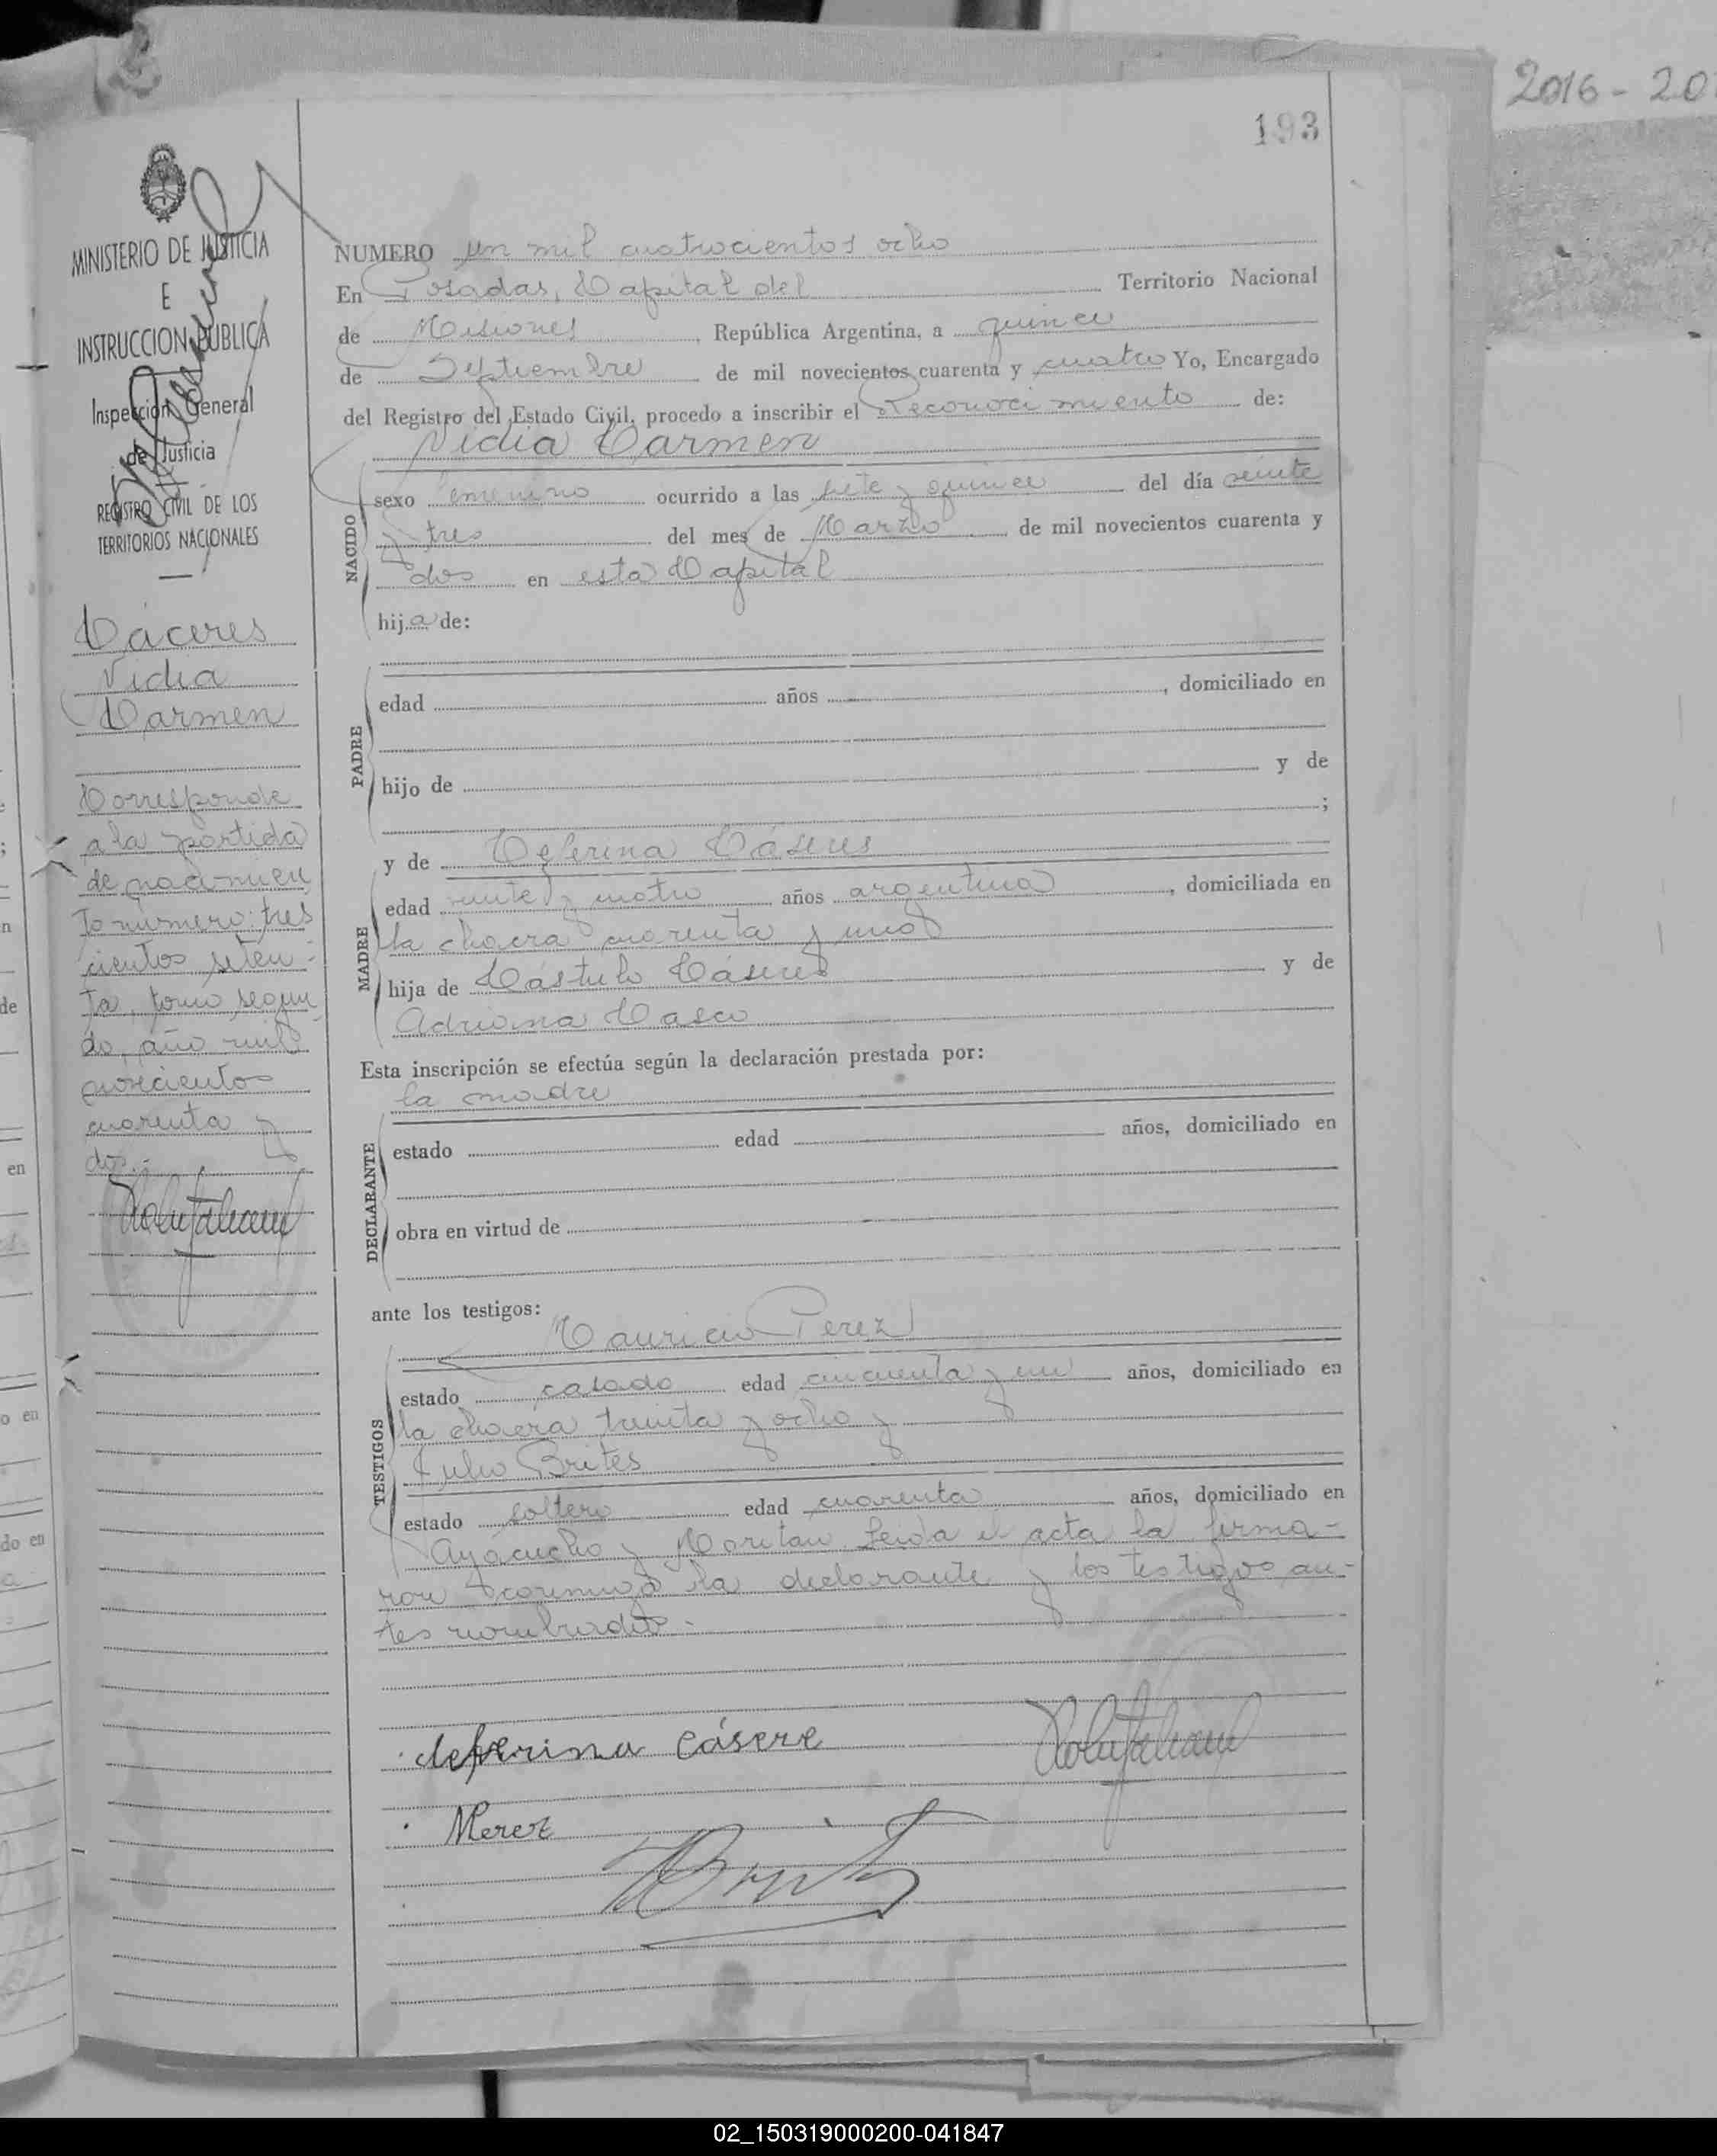 2016-20
193
MINISTERIO DE JUSTICIA
E
INSTRUCCION PUBLICA
Inspección General
de Justicia
REGISTRO CIVIL DE LOS
TERRITORIOS NACIONALES
Cáceres
Nidia
Carmen
Corresponde
a la partida
de nacimien
to número tres
cientos seten-
ta, tomo segun
do, año mil
novecientos
cuarenta y
dos.-
NUMERO un mil cuatrocientos ocho
En Posadas, Capital del Territorio Nacional
de Misiones, República Argentina, a quince
de Septiembre de mil novecientos cuarenta y cuatro Yo, Encargado
del Registro del Estado Civil, procedo a inscribir el Reconocimiento de:
Nidia Carmen
NACIDO
sexo femenino ocurrido a las siete y quince del día veinte
y tres del mes de Marzo de mil novecientos cuarenta y
dos en esta Capital
hija de:
PADRE
edad años , domiciliado en
hijo de y de
;
y de Ceferina Cáseres
MADRE
edad veinte y cuatro años argentina, domiciliada en
la chacra cuarenta y uno
hija de Cástulo Cáseres y de
Adriana Casco
Esta inscripción se efectúa según la declaración prestada por:
la madre
DECLARANTE
estado edad años, domiciliado en
obra en virtud de
ante los testigos:
Mauricio Perez
TESTIGOS
estado casado edad cincuenta y un años, domiciliado en
la chacra treinta y ocho y
Julio Brites
estado soltero edad cuarenta años, domiciliado en
Ayacucho y Leida el acta la firma-
ron conmigo la declarante y los testigos an-
tes nombrados.-
ceferina cásere
MPerez
02_150319000200-041847